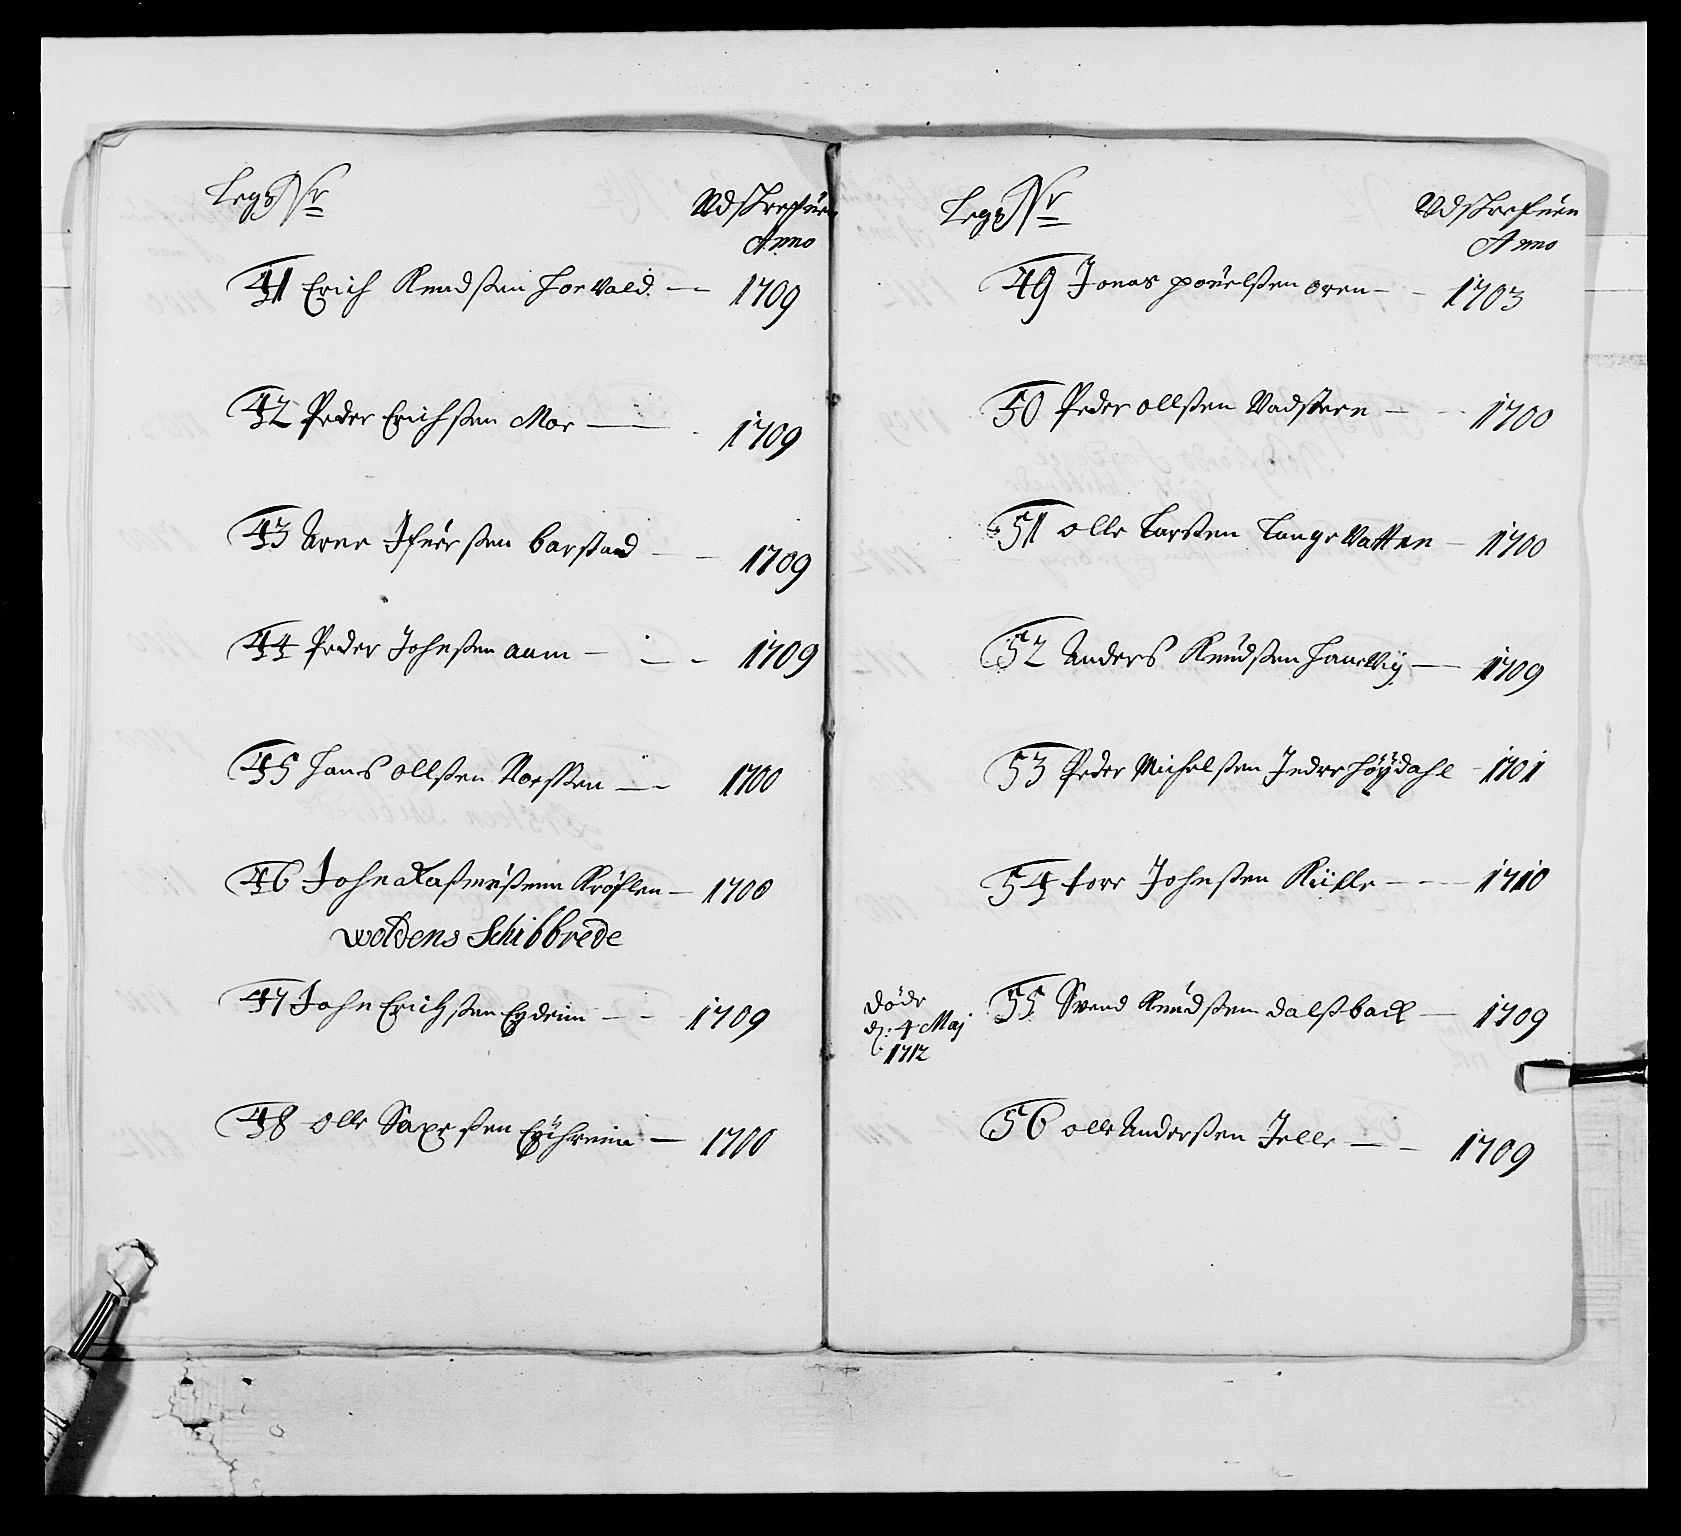 Legs Nr
Udskrefuen
Anno
41 Erich Knudsen Horvald 1709
42 Peder Erichsen Moe 1709
43 Arne Ifuersen barstad 1709
44 Peder Johnsen aam 1709
45 Hans Ollsen Noesten 1700
46 John Rasmusenn Krøflen 1700
woldens Schibbrede
47 John Erichsen Eydeim 1709
48 olle Saxesen 1700
Legs Nr
Udskrefuen
Anno
49 Jonas pouelsen oren 1703
50 Peder ollsen Vadsteen 1700
51 olle Larsen LangeVatten 1700
52 Anders Knudsen HaneVig 1709
53 Peder Michelsen Indre Høydahl 1701
54 tore Johnsen 1710
døde
d. 4 Maj
1712
55 Svend Knudsen dalsback 1709
56 olle Andersen Jelle 1709